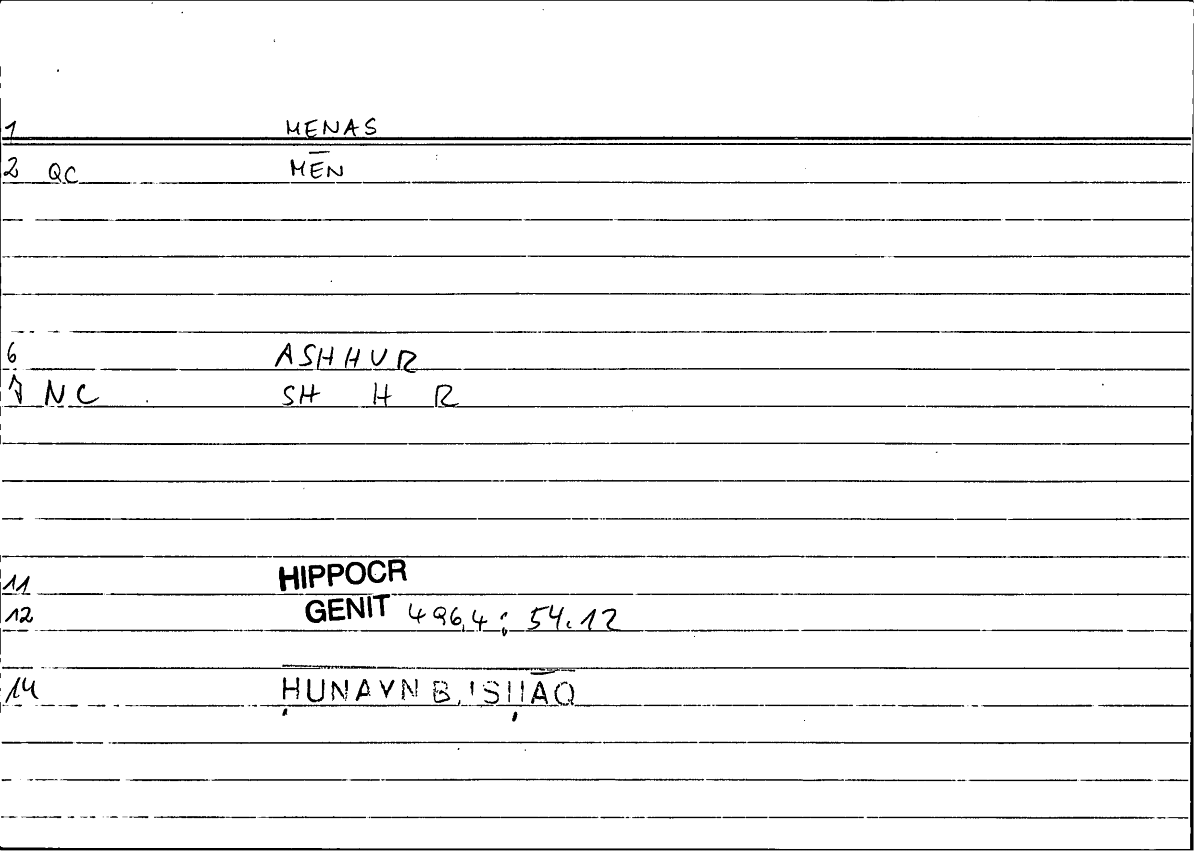 1 MENAS
2 QC MĒN
6 ASHHUR
7 NC SH H R
11 HIPPOCR
12 GENIT 496,4; 54.12
14 ḤUNAYN B. ISḤĀQ